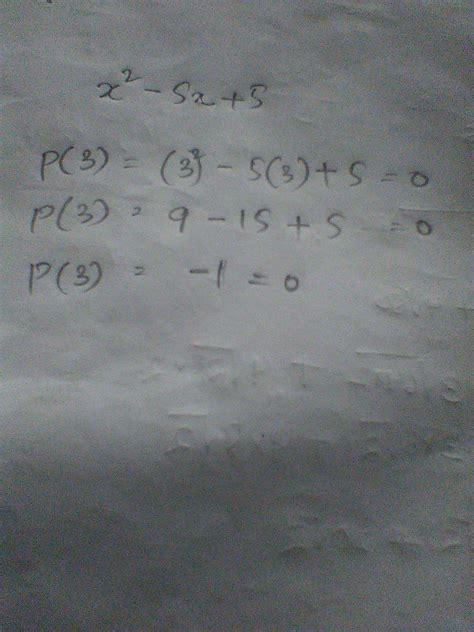 x² - 5x + 5
P(3) = (3²) - 5(3) + 5 = 0
P(3) = 9 - 15 + 5 = 0
P(3) = -1 = 0